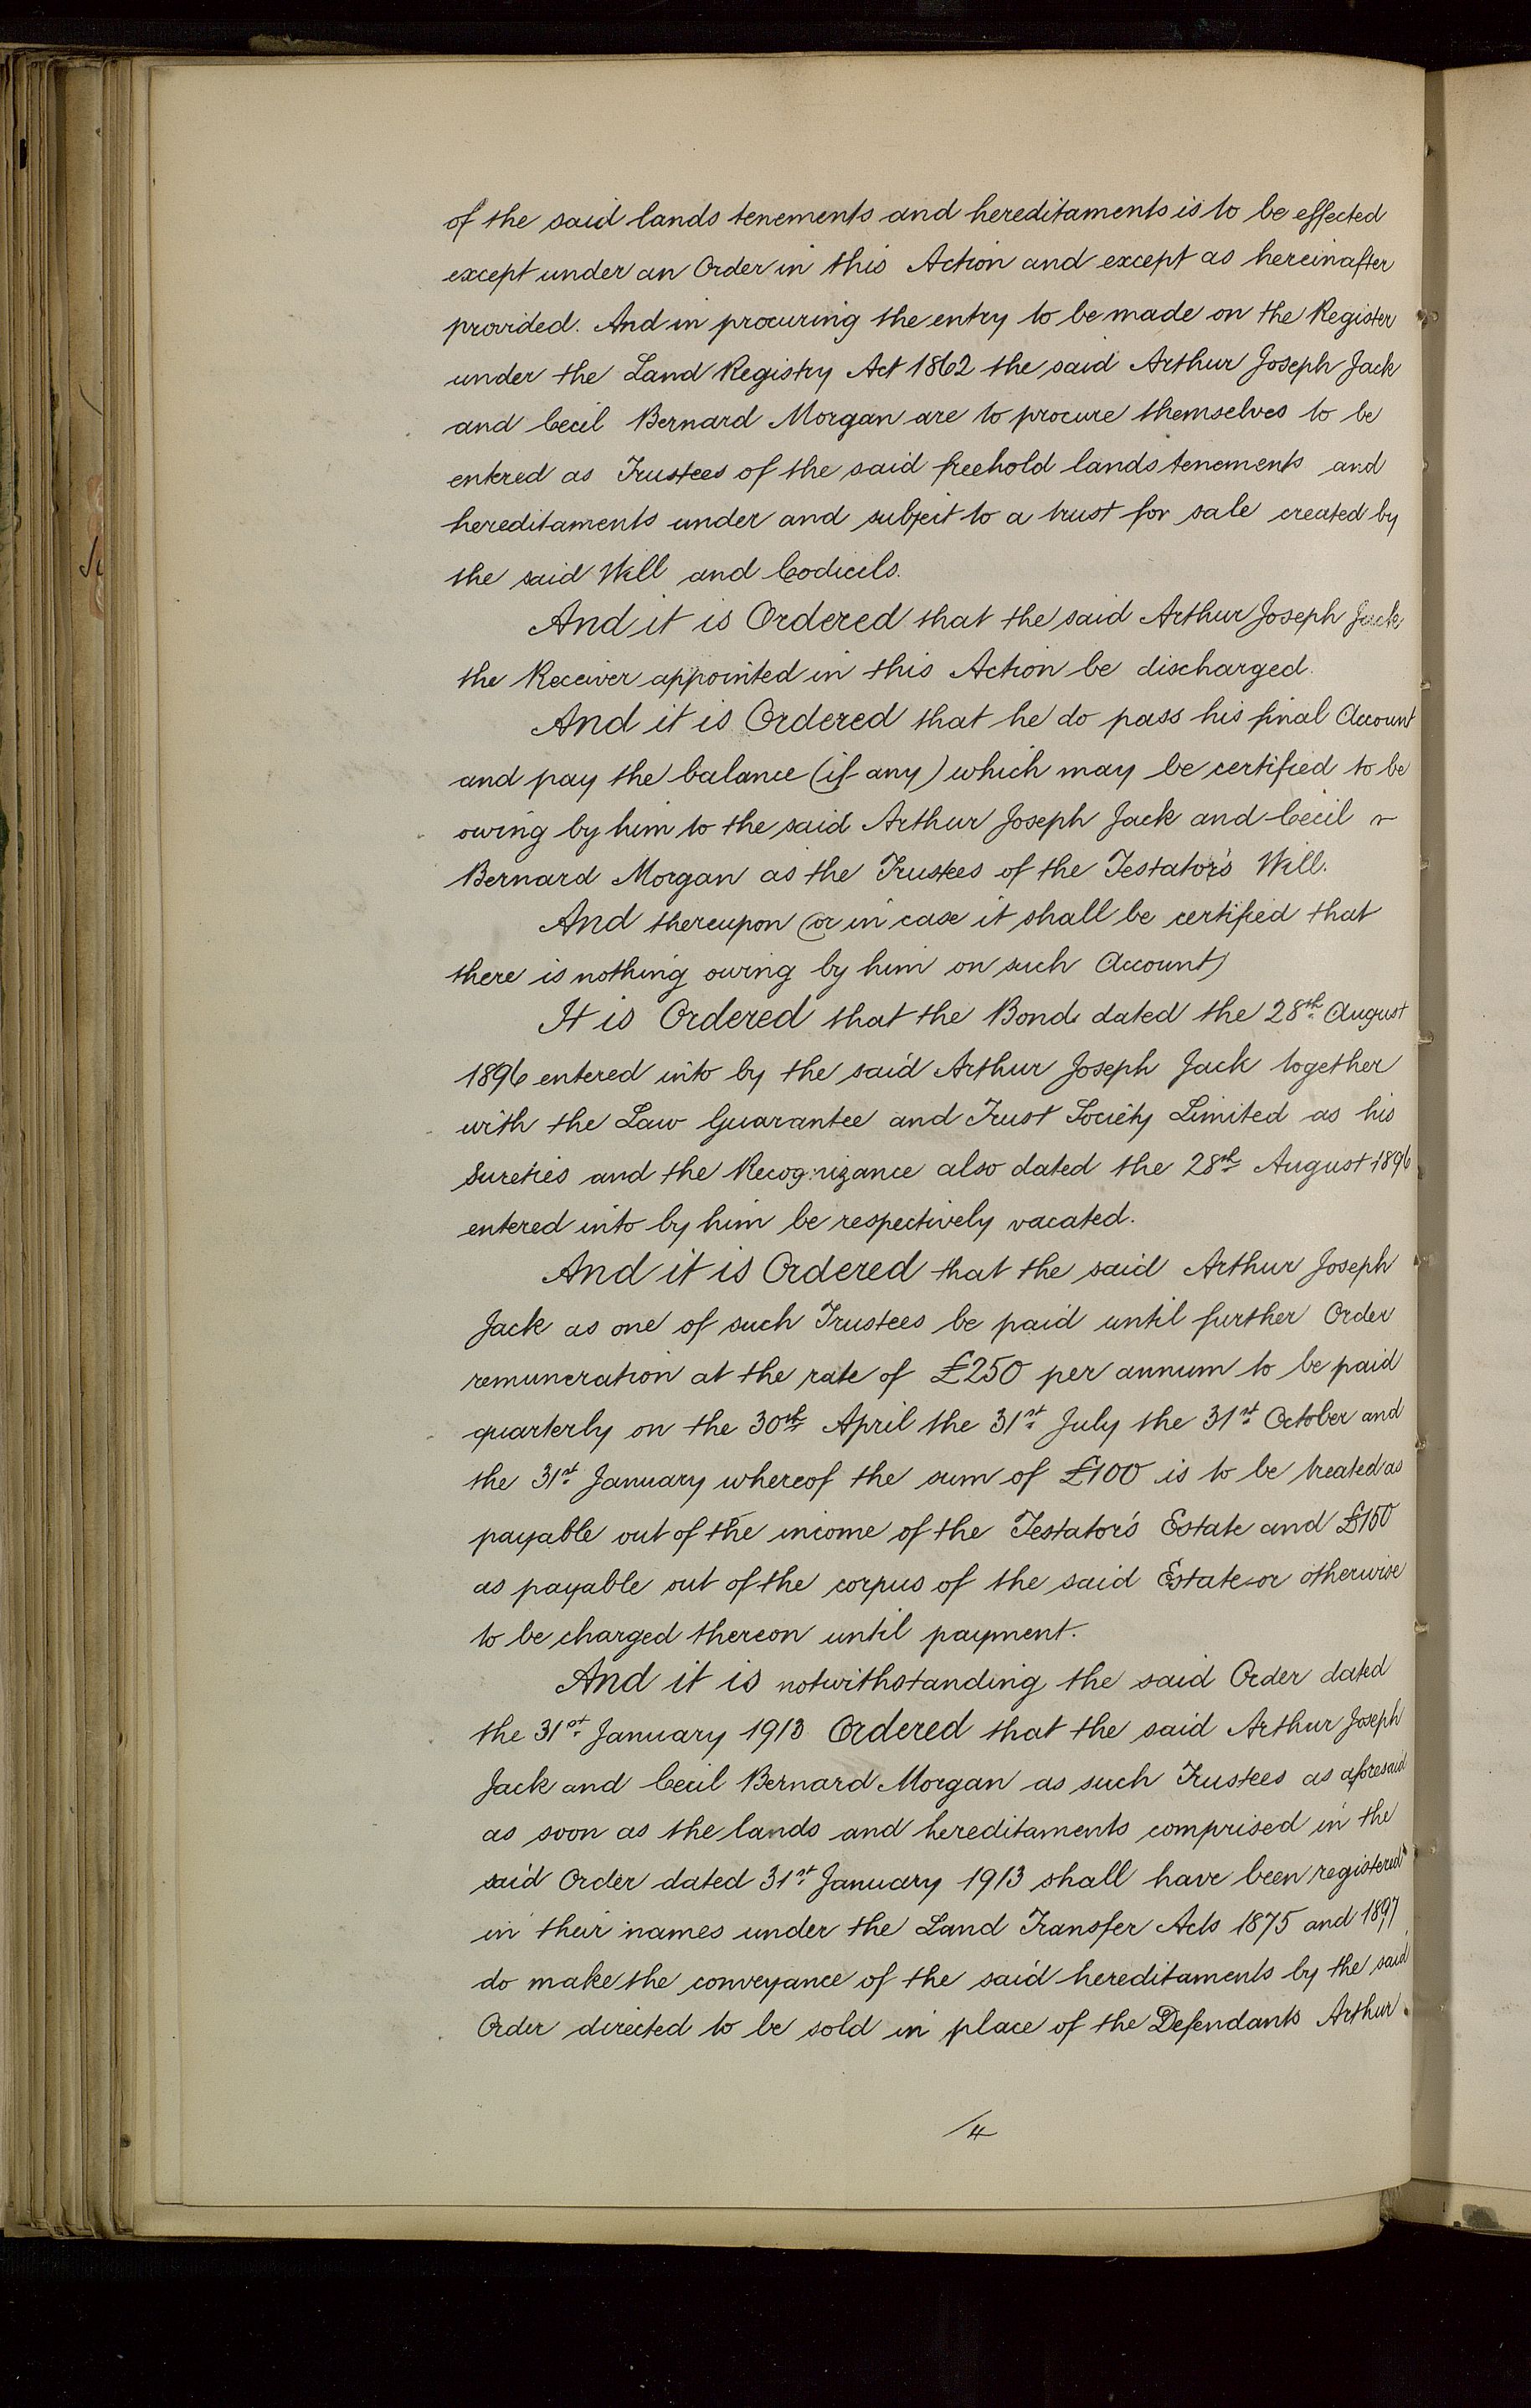 of the said lands tenements and hereditaments is to be effected
except under an Order in this Action and except as hereinafter
provided. And in procuring the entry to be made on the Register
under the Land Registry Act 1862 the said Arthur Joseph Jack
and Cecil Bernard Morgan are to procure themselves to be
entered as Trustees of the said freehold lands tenements and
hereditaments under and subject to a trust for sale created by
the said Will and Codicils.
And it is Ordered that the said Arthur Joseph Jack
the Receiver appointed in this Action be discharged.
And it is Ordered that he do pass his final Account
and pay the balance (if any) which may be certified to be
owing by him to the said Arthur Joseph Jack and Cecil
Bernard Morgan as the Trustees of the Testator's Will.
And thereupon (or in case it shall be certified that
there is nothing owing by him on such Account)
It is Ordered that the Bond dated the 28th August
1896 entered into by the said Arthur Joseph Jack together
with the Law Guarantee and Trust Society Limited as his
Sureties and the Recognizance also dated the 28th August 1896
entered into by him be respectively vacated.
And it is Ordered that the said Arthur Joseph
Jack as one of such Trustees be paid until further Order
remuneration at the rate of £250 per annum to be paid
quarterly on the 30th April the 31st July the 31st October and
the 31st January whereof the sum of £100 is to be treated as
payable out of the income of the Testator's Estate and £150
as payable out of the corpus of the said Estate or otherwise
to be charged thereon until payment.
And it is notwithstanding the said Order dated
the 31st January 1913 Ordered that the said Arthur Joseph
Jack and Cecil Bernard Morgan as such Trustees as aforesaid
as soon as the lands and hereditaments comprised in the
said Order dated 31st January 1913 shall have been registered
in their names under the Land Transfer Acts 1875 and 1897
do make the conveyance of the said hereditaments by the said
Order directed to be sold in place of the Defendants Arthur
/4